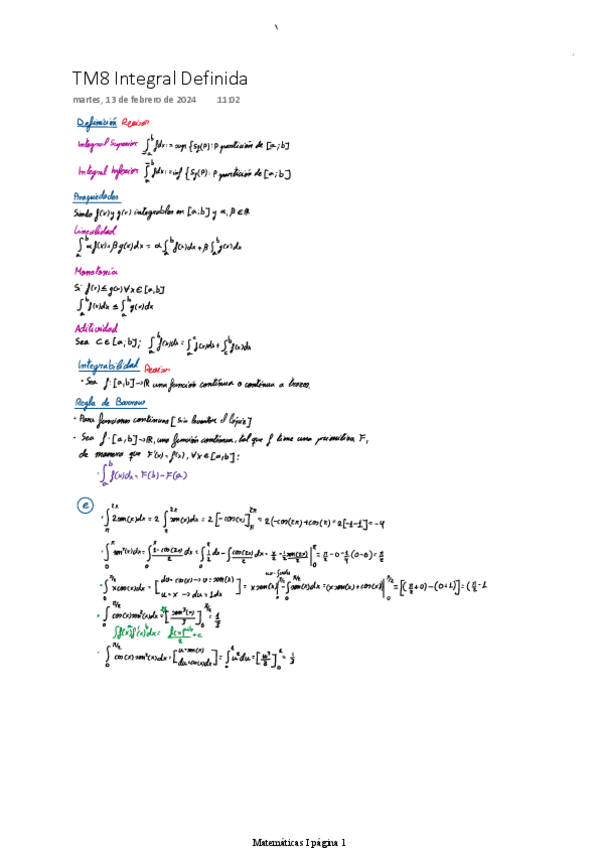 TM8 Integral Definida
martes, 13 de febrero de 2024 11:02
Definición Revisar
Integral Superior ∫_a^b f dx := sup {S_f(P) : P partición de [a;b]
Integral Inferior ∫_a^b f dx := inf {S_f(P) : P partición de [a;b]
Propiedades
Siendo f(x) y g(x) integrables en [a;b] y α, β ∈ ℝ
Linealidad
∫_a^b αf(x)+βg(x)dx = α∫_a^b f(x)dx + β∫_a^b g(x)dx
Monotonía
Si f(x) ≤ g(x) ∀x ∈ [a,b]
∫_a^b f(x)dx ≤ ∫_a^b g(x)dx
Aditividad
Sea c ∈ [a,b]; ∫_a^b f(x)dx = ∫_a^c f(x)dx + ∫_c^b f(x)dx
Integrabilidad Revisar
· Sea f: [a,b]→ℝ una función continua o continua a trozos.
Regla de Barrow
· Para funciones continuas [Sin levantar el lápiz]
· Sea f: [a,b]→ℝ, una función continua, tal que f tiene una primitiva F,
de manera que F'(x) = f(x), ∀x ∈ [a,b]:
· ∫_a^b f(x)dx = F(b) - F(a)
e
· ∫_π^{2π} 2sen(x)dx = 2 ∫_π^{2π} sen(x)dx = 2[-cos(x)]_π^{2π} = 2(-cos(2π)+cos(π)) = 2[-1-1] = -4
· ∫_0^π sen²(x)dx = ∫_0^π (1-cos(2x))/2 dx = ∫_0^π 1/2 dx - ∫ cos(2x)/2 dx = x/2 - 1/2 sen(2x)/2 |_0^π = π/2 - 0 - 1/4 (0-0) = π/2
· ∫_0^{π/2} x cos(x)dx = [dv = cos(x) → v = sen(x)
u = x → du = 1dx] = x sen(x)|_0^{π/2} - ∫_0^{π/2} sen(x)dx = (x sen(x) + cos(x))|_0^{π/2} = [(π/2 + 0) - (0+1)] = (π/2 - 1
· ∫_0^{π/2} cos(x) sen²(x)dx = [sen³(x)/3]_0^{π/2} = 1/3
· ∫_0^{π/2} cos(x) sen²(x)dx = [u = sen(x)
du = cos(x)dx] = ∫_0^1 u² du = [u³/3]_0^1 = 1/3
Matemáticas I página 1